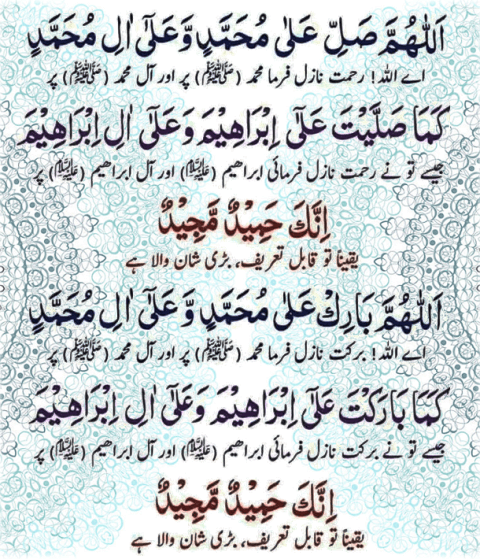 اَللّٰهُمَّ صَلِّ عَلٰى مُحَمَّدٍ وَّعَلٰٓى اٰلِ مُحَمَّدٍ
اے اللہ! رحمت نازل فرما محمد (ﷺ) پر اور آل محمد (ﷺ) پر
كَمَا صَلَّيْتَ عَلٰٓى اِبْرَاهِيْمَ وَعَلٰٓى اٰلِ اِبْرَاهِيْمَ
جیسے تو نے رحمت نازل فرمائی ابراھیم (علیہ السلام) اور آل ابراھیم (علیہ السلام) پر
اِنَّكَ حَمِيْدٌ مَّجِيْدٌ
یقیناً تو قابل تعریف، بڑی شان والا ہے
اَللّٰهُمَّ بَارِكْ عَلٰى مُحَمَّدٍ وَّ عَلٰٓى اٰلِ مُحَمَّدٍ
اے اللہ! برکت نازل فرما محمد (ﷺ) پر اور آل محمد (ﷺ) پر
كَمَا بَارَكْتَ عَلٰٓى اِبْرَاهِيْمَ وَعَلٰٓى اٰلِ اِبْرَاهِيْمَ
جیسے تو نے برکت نازل فرمائی ابراھیم (علیہ السلام) اور آل ابراھیم (علیہ السلام) پر
اِنَّكَ حَمِيْدٌ مَّجِيْدٌ
یقیناً تو قابل تعریف، بڑی شان والا ہے